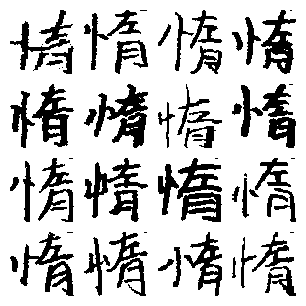 惰惰惰惰
惰惰惰惰
惰惰惰惰
惰惰惰惰